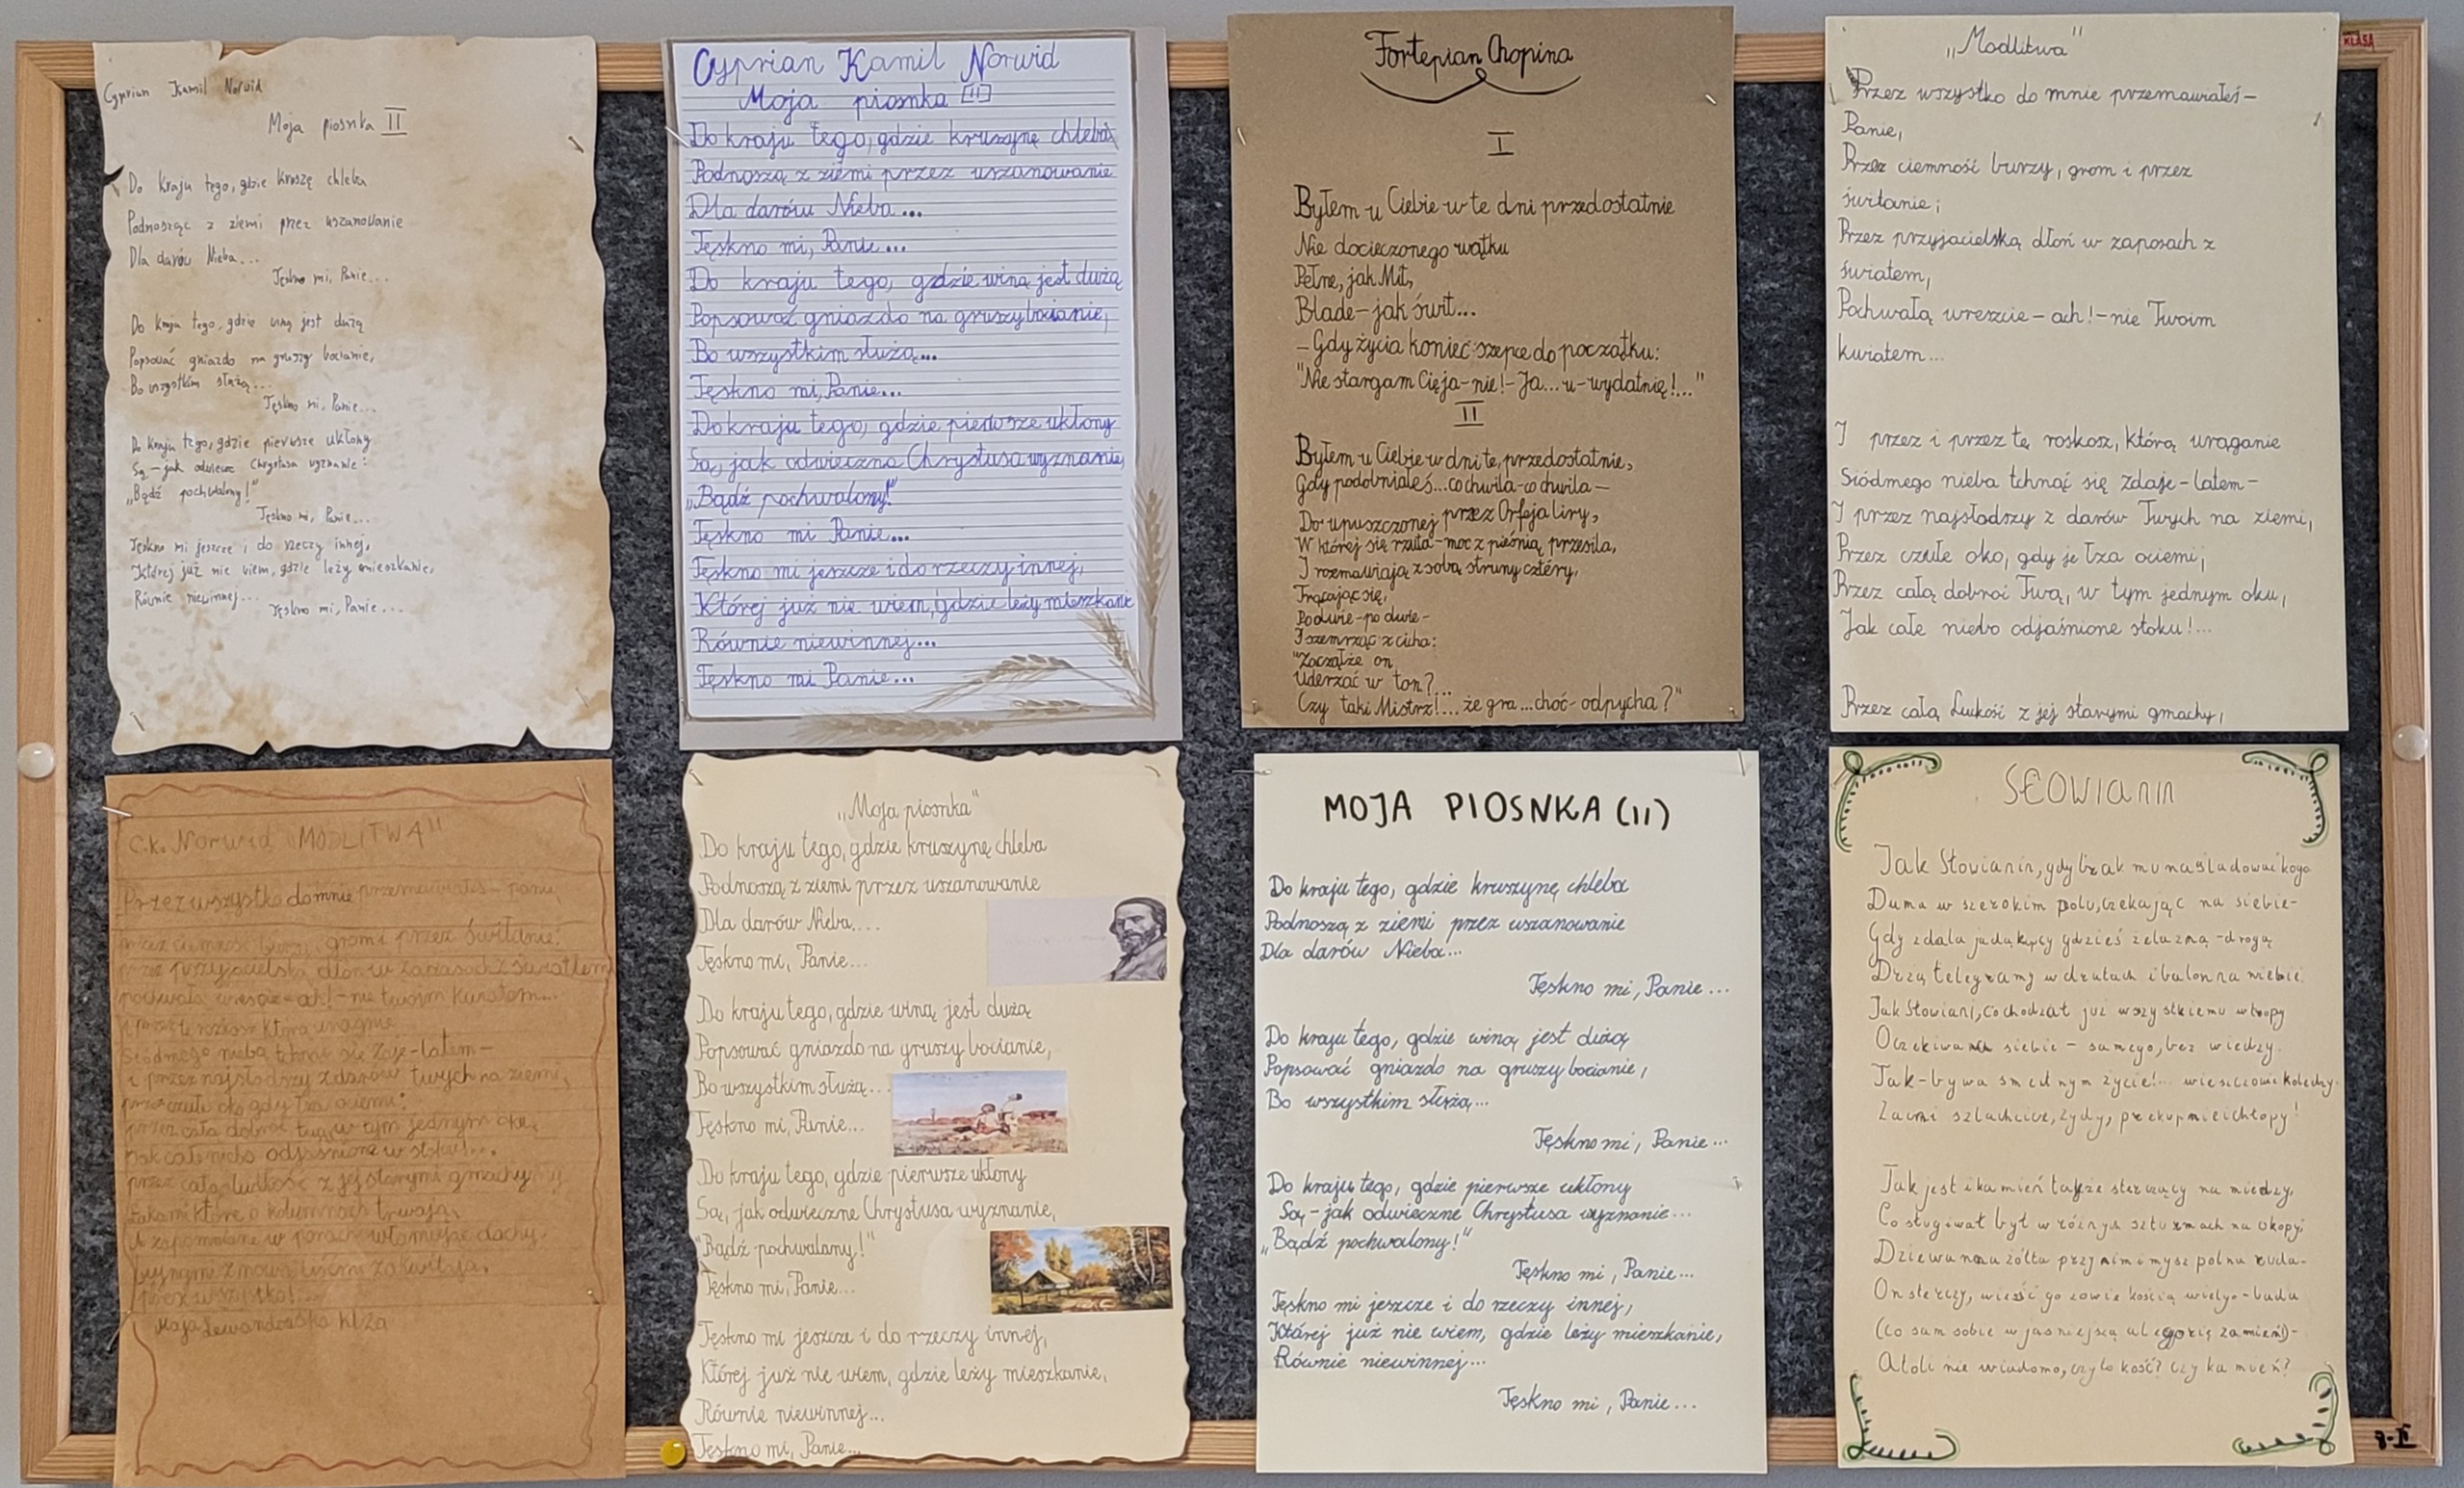 Cyprian Kamil Norwid
Moja piosnka II
Do kraju tego, gdzie kruszę chleba
Podnosząc z ziemi przez uszanowanie
Dla darów Nieba...
Tęskno mi, Panie...
Do kraju tego, gdzie winą jest dużą
Popsować gniazdo na gruszy bocianie,
Bo wszystkim służą...
Tęskno mi, Panie...
Do kraju tego, gdzie pierwsze ukłony
Są - jak odwieczne Chrystusa wyznanie:
„Bądź pochwalony!"
Tęskno mi, Panie...
Tęskno mi jeszcze i do rzeczy innej,
Której już nie wiem, gdzie leży mieszkanie,
Równie niewinnej...
Tęskno mi, Panie...
Cyprian Kamil Norwid
Moja piosnka [II]
Do kraju tego, gdzie kruszynę chleba
Podnoszą z ziemi przez uszanowanie
Dla darów Nieba...
Tęskno mi, Panie...
Do kraju tego, gdzie winą jest dużą
Popsować gniazdo na gruszy bocianie,
Bo wszystkim służą...
Tęskno mi, Panie...
Do kraju tego, gdzie pierwsze ukłony
Są, jak odwieczne Chrystusa wyznanie,
„Bądź pochwalony!"
Tęskno mi Panie...
Tęskno mi jeszcze i do rzeczy innej,
Której już nie wiem, gdzie leży mieszkanie
Równie niewinnej...
Tęskno mi Panie...
Fortepian Chopina
I
Byłem u Ciebie w te dni przedostatnie
Nie docieczonego wątku
Pełne, jak Mit,
Blade - jak świt...
- Gdy życia koniec szepce do początku:
"Nie stargam Cię ja - nie! - Ja... u-wydatnię!..."
II
Byłem u Ciebie w dni te, przedostatnie,
Gdy podobniałeś... co chwila - co chwila -
Do upuszczonej przez Orfeja liry,
W której się rzutu - moc z pieśnią przesila,
I rozmawiają z sobą struny cztéry,
Trącając się,
Po dwie - po dwie -
I szemrząc z cicha:
"Zacząłże on
Uderzać w ton?...
Czy taki Mistrz!... że gra... choć - odpycha?"
„Modlitwa"
Przez wszystko do mnie przemawiałeś -
Panie,
Przez ciemność burzy, grom i przez
świtanie;
Przez przyjacielską dłoń w zapasach z
światem,
Pochwałą wreszcie - ach! - nie Twoim
kwiatem...
I przez i przez tę roskosz, którą urąganie
Siódmego nieba tchnąć się zdaje - latem -
I przez najsłodszy z darów Twych na ziemi,
Przez czułe oko, gdy je łza ociemi;
Przez całą dobroć Twą, w tym jednym oku,
Jak całe niebo odjaśnione stoku!...
Przez całą Ludkość z jej starymi gmachy,
KLASA
C.K. Norwid „MODLITWA"
Przez wszystko do mnie przemawiałeś - panie,
przez ciemność burzy, grom i przez świtanie:
przez przyjacielską dłoń w zapasach z światłem
pochwałą wreszcie - ach! - nie twoim kwiatem...
i przez tę rozkosz którą uragnie
siódmego nieba tchnąć się zaje - latem -
i przez najsłodszy z darów twych na ziemi,
przez czułe oko gdy łza ociemi:
przez całą dobroć twą, w tym jednym oku,
jak całe niebo odjaśnione w stoku!...
przez całą ludkość z jej starymi gmachy
łukami które o kolumnach trwają,
A zapomniane w porach włamując dachy.
bujnymi z nowa liśćmi zakwitają.
przez wszystko!...
Maja Lewandowska kl 2a
„Moja piosnka"
Do kraju tego, gdzie kruszynę chleba
Podnoszą z ziemi przez uszanowanie
Dla darów Nieba....
Tęskno mi, Panie...
Do kraju tego, gdzie winą jest dużą
Popsować gniazdo na gruszy bocianie,
Bo wszystkim służą...
Tęskno mi, Panie...
Do kraju tego, gdzie pierwsze ukłony
Są, jak odwieczne Chrystusa wyznanie,
"Bądź pochwalany!"
Tęskno mi, Panie...
Tęskno mi jeszcze i do rzeczy innej,
Której już nie wiem, gdzie leży mieszkanie,
Równie niewinnej...
Tęskno mi, Panie...
MOJA PIOSNKA (II)
Do kraju tego, gdzie kruszynę chleba
Podnoszą z ziemi przez uszanowanie
Dla darów Nieba...
Tęskno mi, Panie...
Do kraju tego, gdzie winą jest dużą
Popsować gniazdo na gruszy bocianie,
Bo wszystkim służą...
Tęskno mi, Panie...
Do kraju tego, gdzie pierwsze ukłony
Są - jak odwieczne Chrystusa wyznanie...
„Bądź pochwalony!"
Tęskno mi, Panie...
Tęskno mi jeszcze i do rzeczy innej,
Której już nie wiem, gdzie leży mieszkanie,
Równie niewinnej...
Tęskno mi, Panie...
SŁOWIANIN
Jak Słowianin, gdy brak mu naśladować kogo
Duma w szerokim polu, czekając na siebie -
Gdy z dala jadą kupcy gdzieś żelazną - drogą
Drżą telegramy w drutach i balon na niebie.
Jak Słowianin, co chodził już wszystkiemu w tropy
Oczekiwa na siebie - samego, bez wiedzy.
Tak - bywa smętnym życie!... wieszczowie koledzy.
Zacni szlachcice, żydy, przekupnie i chłopy!
Tak jest i kamień także sterczący na miedzy,
Co sługiwał był w różnych szturmach na okopy;
Dziewanna żółta przy nim i mysz polna ruda -
On sterczy, wieść go zowie kością wielgo-luda
(Co sam sobie w jaśniejszą alegorię zamień) -
Atoli nie wiadomo, czy to kość? czy kamień?